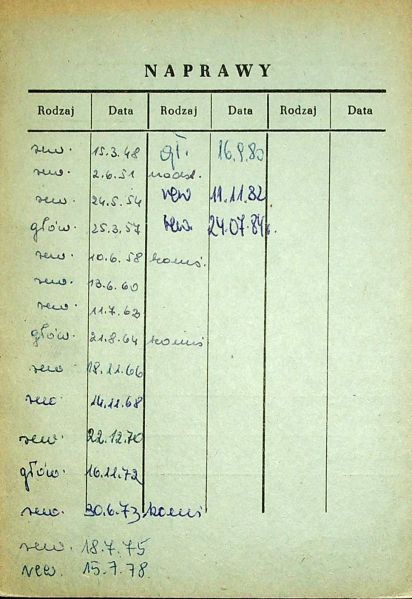 NAPRAWY
Rodzaj Data Rodzaj Data Rodzaj Data
rew. 15.3.48 gł. 16.9.80
rew. 2.6.51
rew. 24.5.54 rew 11.11.82
głów. 25.3.57 rew. 24.07.84r.
rew. 10.6.58
rew. 13.6.60
rew. 11.7.63
głów. 21.8.64
rew 18.11.66
rew. 14.11.68
rew. 22.12.70
głów. 16.11.72
rew. 30.6.73
rew. 18.7.75
rew. 15.7.78